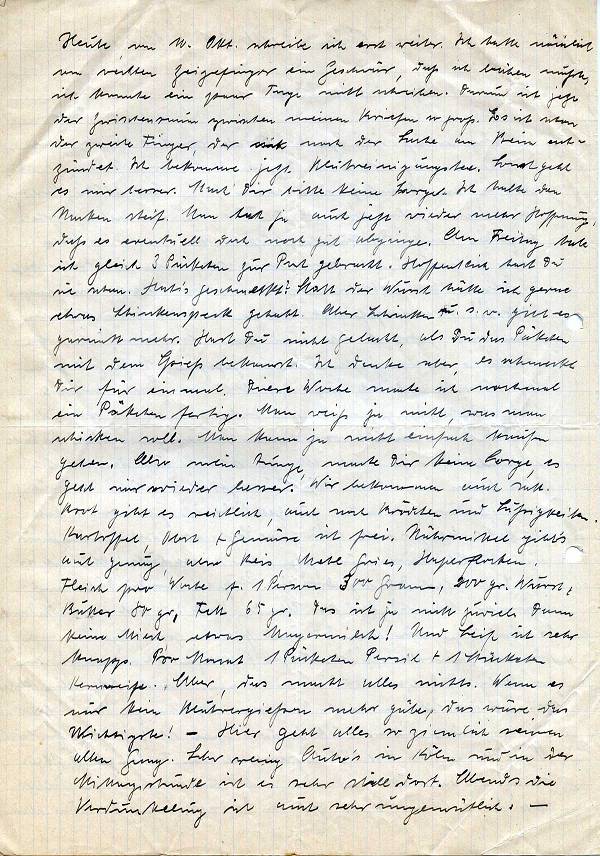 Heute, am 10. Okt. schreibe ich erst weiter. Ich hatte nämlich
am rechten Zeigefinger ein Geschwür, daß ich leiden mußte,
ich konnte ein paar Tage nicht schreiben. Darum ist jetzt
der Zwischenraum zwischen meinen Briefen so groß. Es ist nun
der zweite Finger, der sich nach der Sache am Bein ent-
zündet. Ich bekomme jetzt Blutreinigungstee. Sonst geht
es mir besser. Mach Dir bitte keine Sorge. Ich halte den
Nacken steif. Man hat ja auch jetzt wieder mehr Hoffnung,
daß es eventuell doch noch gut abginge. Am Freitag habe
ich gleich 3 Päckchen zur Post gebracht. Hoffentlich hast Du
sie schon. Hat's geschmeckt? Statt der Wurst hätte ich gerne
etwas Schinkenspeck gehabt. Aber Schinken u. s. w. gibt es
gar nicht mehr. Hast Du nicht gelacht, als Du das Päckchen
mit dem Grieß bekamst. Ich denke aber, es schmeckt
Dir für einmal. Diese Woche mache ich nochmal
ein Päckchen fertig. Man weiß ja nicht, was man
schicken soll. Man kann ja nicht einfach kaufen
gehen. Also mein Junge, mache Dir keine Sorge, es
geht mir wieder besser. Wir bekommen auch satt.
Brot gibt es reichlich, auch mal Brötchen und Süßigkeiten.
Kartoffel, Obst + Gemüse ist frei. Nährmittel gibt's
auch genug, also Reis, Mehl, Gries, Haferflocken.
Fleisch pro Woche f. 1 Person 500 Gramm, 200 gr. Wurst,
Butter 80 gr, Fett 65 gr. Das ist ja nicht zuviel. Dann
keine Milch etwas Magermilch! Und Seife ist sehr
knapp. Pro Monat 1 Päckchen Persil + 1 Stückchen
Kernseife. Aber, das macht alles nichts. Wenn es
nur kein Blutvergießen mehr gäbe, das wäre das
Wichtigste! – Hier geht alles so ziemlich seinen
alten Gang. Sehr wenig Auto's in Köln und in der
Mittagsstunde ist es sehr still dort. Abends die
Verdunkelung ist auch sehr ungemütlich. –